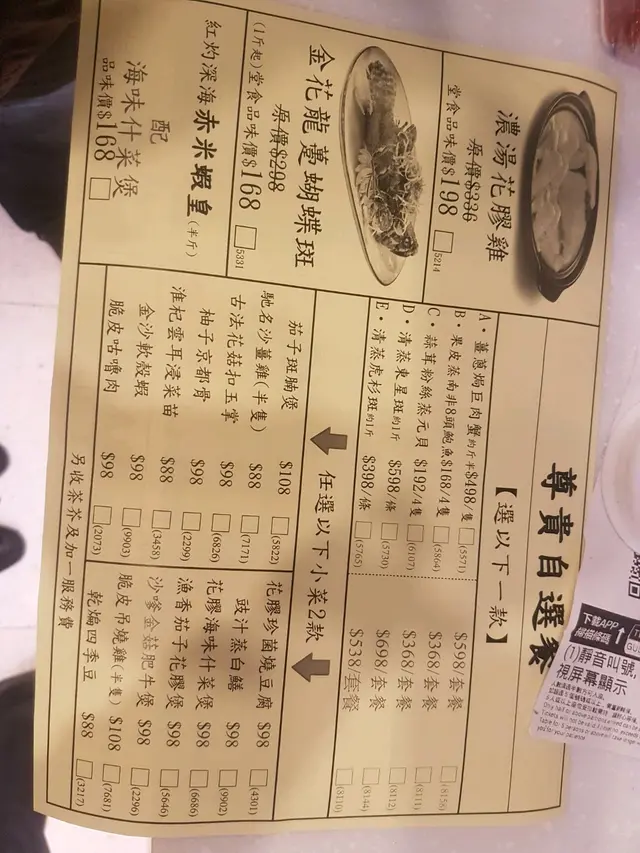 濃湯花膠雞
原價$336
堂食品味價$198 5214
金花龍躉蝴蝶斑
原價$298
(1斤起)堂食品味價$168 5331
紅灼深海赤米蝦皇(半斤)
配
海味什菜煲
品味價$168
尊貴自選餐
【選以下一款】
A·薑蔥焗巨肉蟹約斤半$498/隻 (5571) $508/套餐 (8158)
B·果皮蒸南非8頭鮑魚$168/4隻 (5864) $368/套餐 (8111)
C·蒜茸粉絲蒸元貝 $192/4隻 (6107) $368/套餐 (8112)
D·清蒸東星斑約1斤 $598/條 (5730) $698/套餐 (8144)
E·清蒸虎杉斑約1斤 $398/條 (5765) $538/套餐 (8110)
任選以下小菜2款
茄子斑腩煲 $108 (5822)
馳名沙薑雞(半隻) $88 (7171)
古法花菇扣玉掌 $98 (6826)
柚子京都骨 $98 (2299)
淮杞雲耳浸菜苗 $88 (3458)
金沙軟殼蝦 $98 (9903)
脆皮咕嚕肉 $98 (2073)
花膠珍菌燒豆腐 $98 (4301)
豉汁蒸白鱔 $98 (9902)
花膠海味什菜煲 $98 (6686)
漁香茄子花膠煲 $98 (5646)
沙嗲金菇肥牛煲 $98 (2296)
脆皮吊燒雞(半隻) $108 (7681)
乾煸四季豆 $88 (3217)
另收茶芥及加一服務費
下載APP
掃描條碼
(1)靜音叫號,
視屏幕顯示